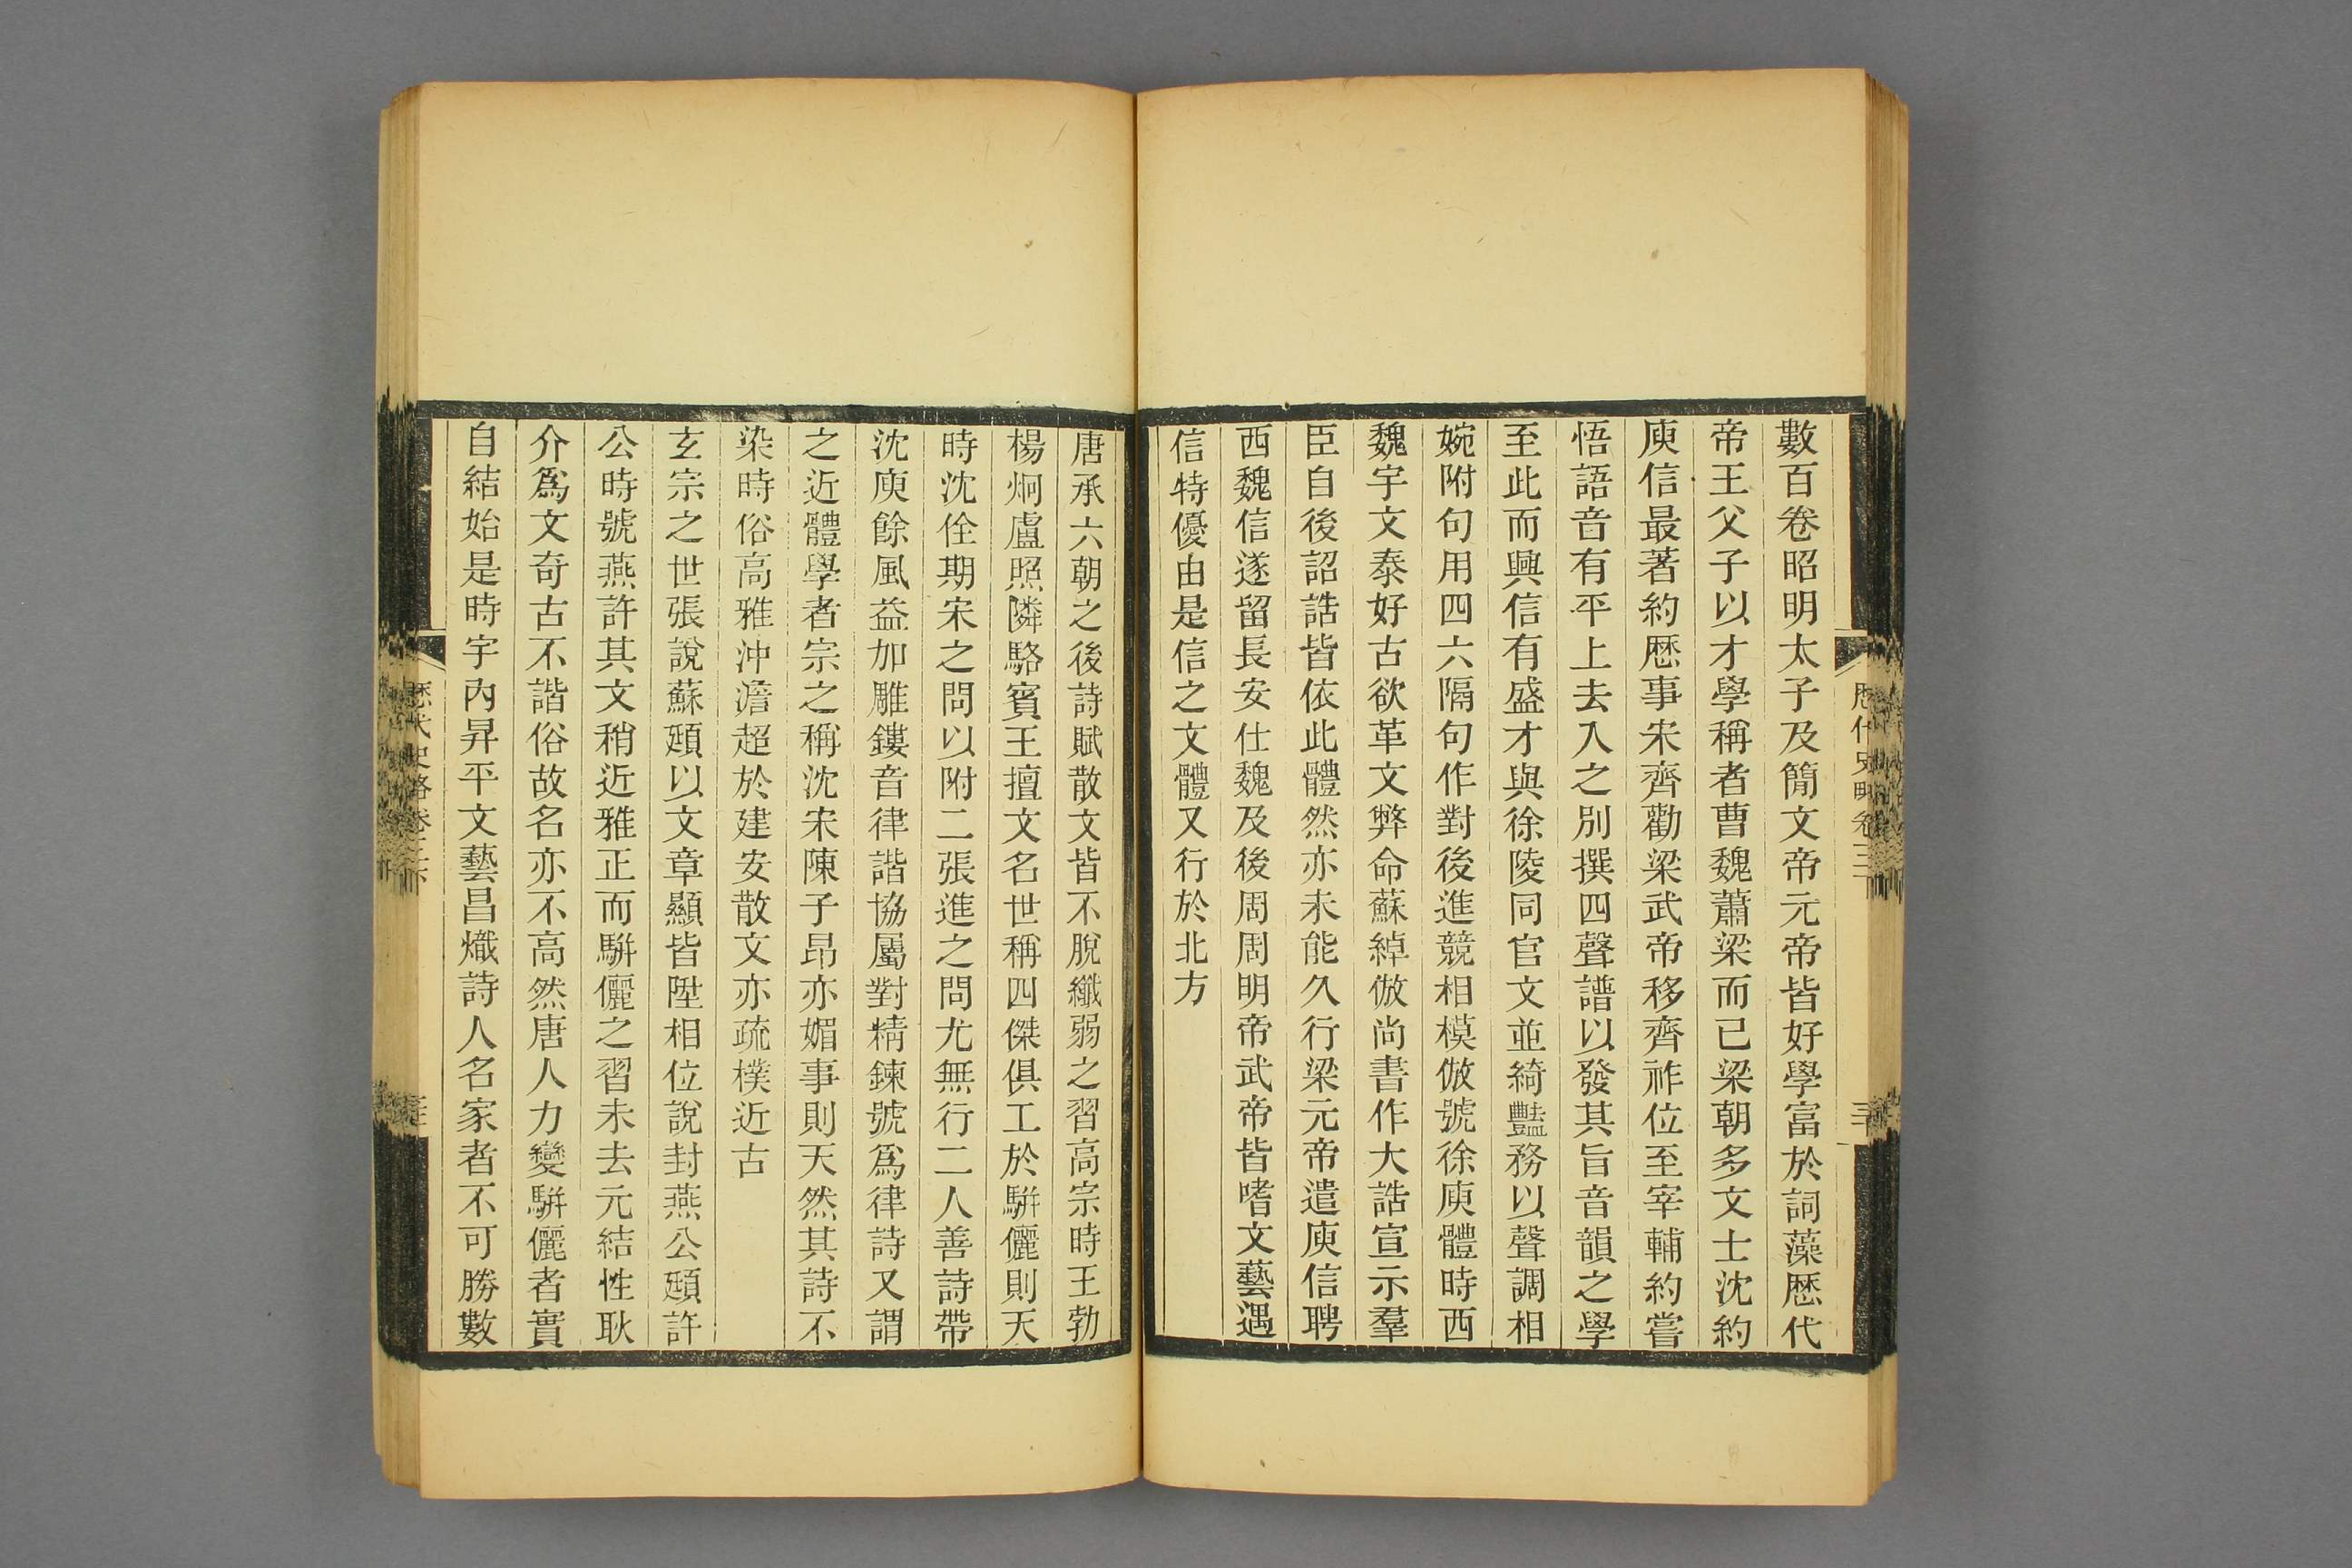 數百卷昭明太子及簡文帝元帝皆好學富於詞藻歷代
帝王父子以才學稱者曹魏蕭梁而已梁朝多文士沈約
庾信最著約歷事宋齊勸梁武帝移齊祚位至宰輔約嘗
悟語音有平上去入之別撰四聲譜以發其旨音韻之學
至此而興信有盛才與徐陵同官文並綺豔務以聲調相
婉附句用四六隔句作對後進競相模倣號徐庾體時西
魏宇文泰好古欲革文弊命蘇綽倣尚書作大誥宣示羣
臣自後詔誥皆依此體然亦未能久行梁元帝遣庾信聘
西魏信遂留長安仕魏及後周周明帝武帝皆嗜文藝遇
信特優由是信之文體又行於北方
唐承六朝之後詩賦散文皆不脫纖弱之習高宗時王勃
楊炯盧照隣駱賓王擅文名世稱四傑俱工於駢儷則天
時沈佺期宋之問以附二張進之問尤無行二人善詩帶
沈庾餘風益加雕鏤音律諧協屬對精鍊號爲律詩又謂
之近體學者宗之稱沈宋陳子昂亦媚事則天然其詩不
染時俗高雅沖澹超於建安散文亦疏樸近古
玄宗之世張說蘇頲以文章顯皆陞相位說封燕公頲許
公時號燕許其文稍近雅正而駢儷之習未去元結性耿
介爲文奇古不諧俗故名亦不高然唐人力變駢儷者實
自結始是時宇內昇平文藝昌熾詩人名家者不可勝數
歷代史略卷三